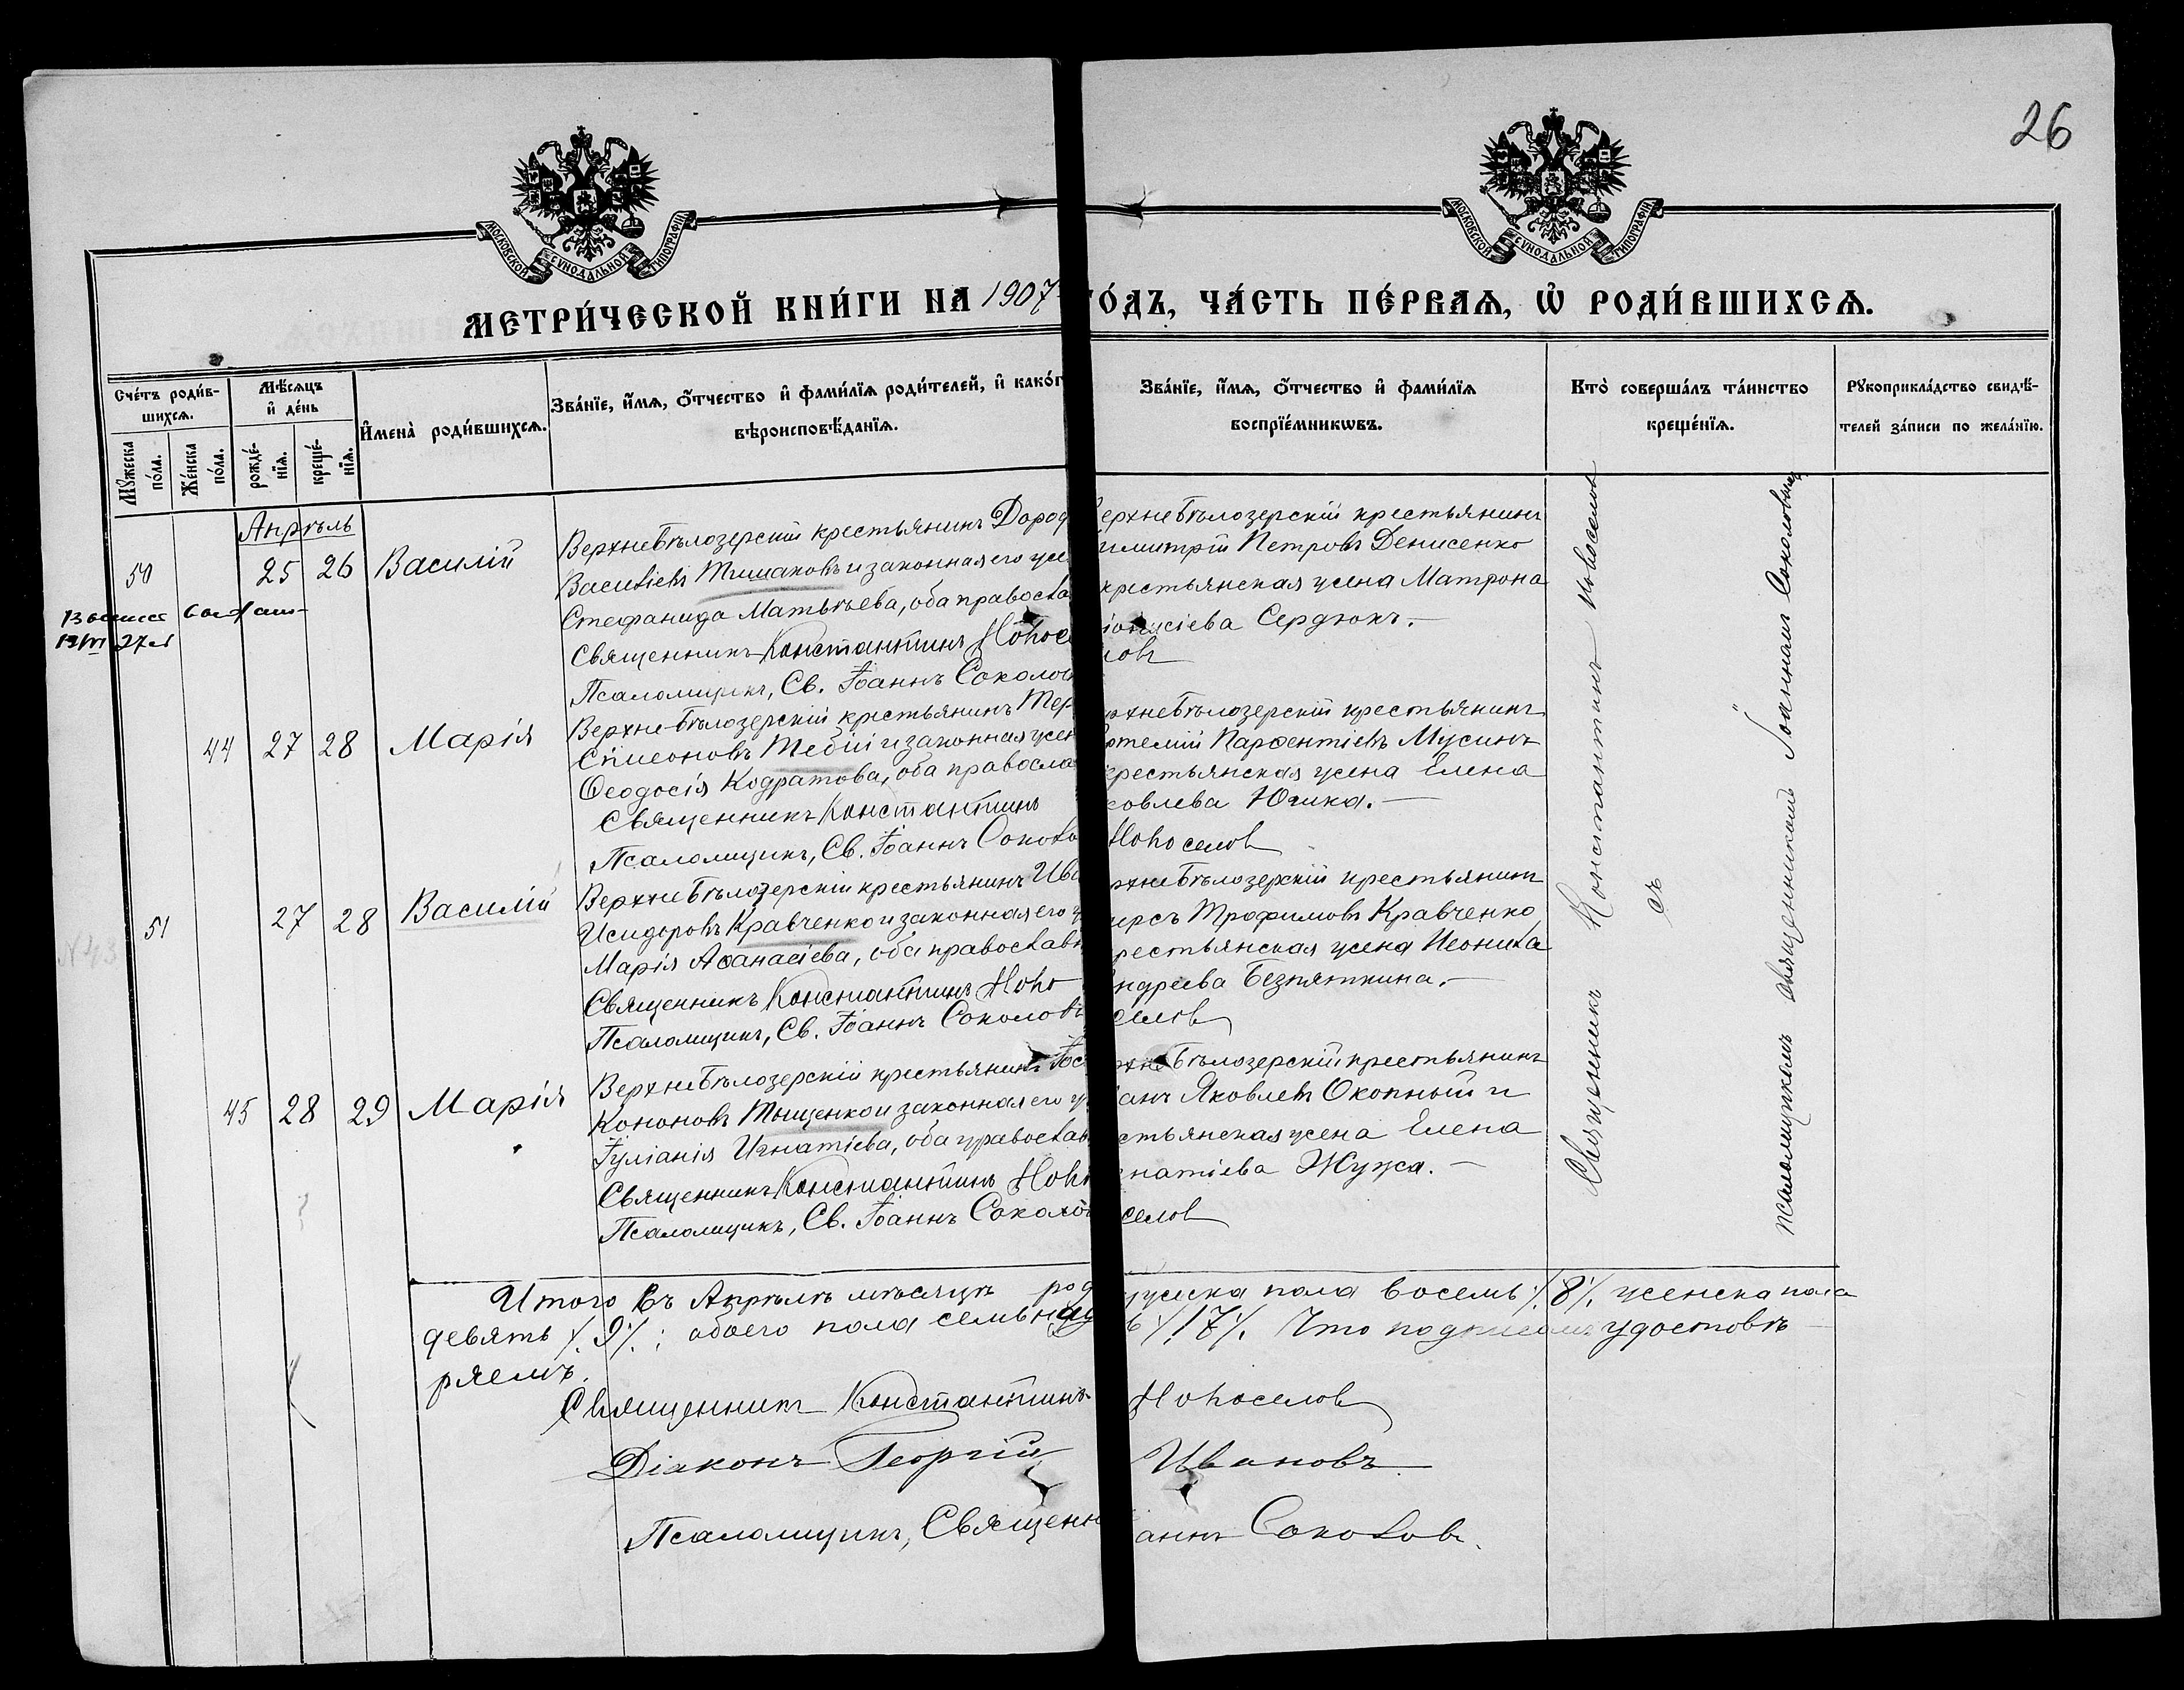 26
МОСКОВСКОЙ СѴНОДАЛЬНОЙ ТИПОГРАФІИ
МОСКОВСКОЙ СѴНОДАЛЬНОЙ ТИПОГРАФІИ
МЕТРИ́ЧЕСКОЙ КНИ́ГИ НА 1907
ГО́ДЪ, ЧА́СТЬ ПЕ́РВАѦ, Ѡ҆ РОДИ́ВШИХСѦ.
Сче́тъ роди́в-
шихсѧ.
Мꙋжеска по́ла.
Же́нска по́ла.
Мѣ́сѧцъ
и҆ де́нь
рожде́-
нїѧ.
креще́-
нїѧ.
И҆мена̀ роди́вшихсѧ.
Зва́нїе, и҆́мѧ, ѻ҆́тчество и҆ фами́лїѧ роди́телей, и҆ како́г
вѣроисповѣ́данїѧ.
Зва́нїе, и҆́мѧ, ѻ҆́тчество и҆ фами́лїѧ
воспрїе́мникѡвъ.
Кто̀ соверша́лъ та́инство
креще́нїѧ.
Рꙋкоприкла́дство свидѣ́-
телей за́писи по жела́нїю.
Апрѣль
50 25 26 Василій
ВерхнеБѣлозерскій крестьянинъ Дороѳ
Василіевъ Тимаковъ и законная его же
Стефанида Матвѣева, оба правосла
Священникъ Константинъ Новосе
Псаломщикъ, Св. Іоаннъ Соколов
ерхнеБѣлозерскій крестьянинъ
имитрій Петровъ Денисенко
крестьянская жена Матрона
іонисіева Сердюкъ.—
ловъ
44 27 28 Марія
Верхне-Бѣлозерскій крестьянинъ Тер
Сѵмеоновъ Тебій и законная жен
Ѳеодосія Кодратова, оба правосла
Священникъ Константинъ
Псаломщикъ, Св. Іоаннъ Соколо
рхнеБѣлозерскій крестьянинъ
ртемій Парѳентіевъ Мусинъ
крестьянская жена Елена
ковлева Юшка.—
Новоселов
51 27 28 Василій
ВерхнеБѣлозерскій крестьянинъ Ива
Исидоровъ Кравченко и законная его ж
Марія Аѳанасіева, оба православн
Священникъ Константинъ Ново
Псаломщикъ, Св. Іоаннъ Соколовъ
рхнеБѣлозерскій крестьянинъ
ирсъ Трофимовъ Кравченко
рестьянская жена Неонила
ндреева Безпяткина.—
селов
45 28 29 Марія
ВерхнеБѣлозерскій крестьянинъ Іос
Кононовъ Тищенко и законная его ж
Іуліанія Игнатіева, оба православ
Священникъ Константинъ Ново
Псаломщикъ, Св. Іоаннъ Соколов
рхнеБѣлозерскій крестьянинъ
анъ Яковлевъ Окопный и
стьянская жена Елена
гнатіева Жужа.—
селов
Священникъ Константинъ Новоселов
съ
псаломщикомъ священникомъ Іоанномъ Соколовымъ
Итого въ Апрѣлѣ мѣсяцѣ род
ужска пола восемь ·/. 8 ·/. женска пола
девять ·/. 9 ·/.; обоего пола семьнад
ь ·/. 17 ·/. Что подписомъ удостовѣ
ряемъ.
Священникъ Константинъ Новоселов
Діаконъ Георгій Ивановъ
Псаломщикъ, Священн
аннъ Соколовъ.